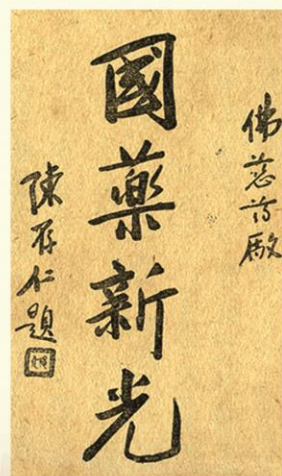 佛慈药厰
國藥新光
陳存仁題